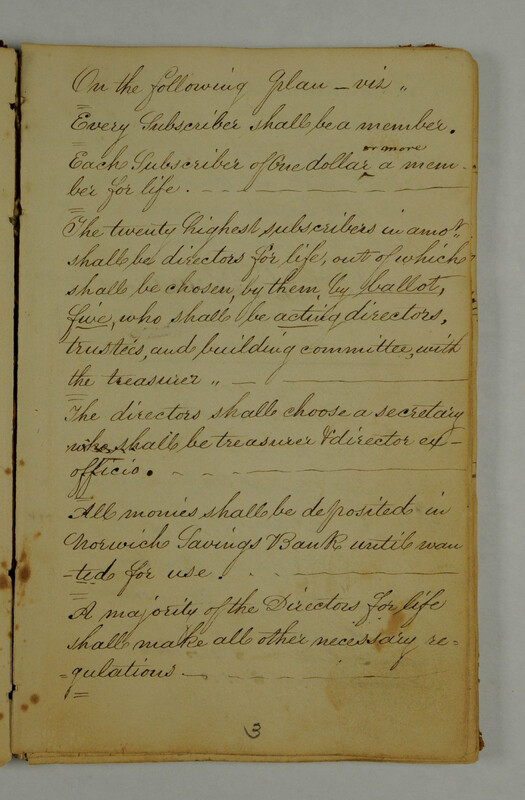 On the following plan — viz „
Every Subscriber shall be a member.
or more
Each Subscriber of One dollar ‸ a mem-
ber for life.
The twenty highest subscribers in amot.
shall be directors for life, out of which
shall be chosen, by them, by ballot,
five, who shall be acting directors,
trustees, and building committee, with
the treasurer „ —
The directors shall choose a secretary
who shall be treasurer & director ex-
officio.
All monies shall be deposited in
Norwich Savings Bank until wan
-ted for use.
A majority of the Directors for life
shall make all other necessary re-
-gulations —
3